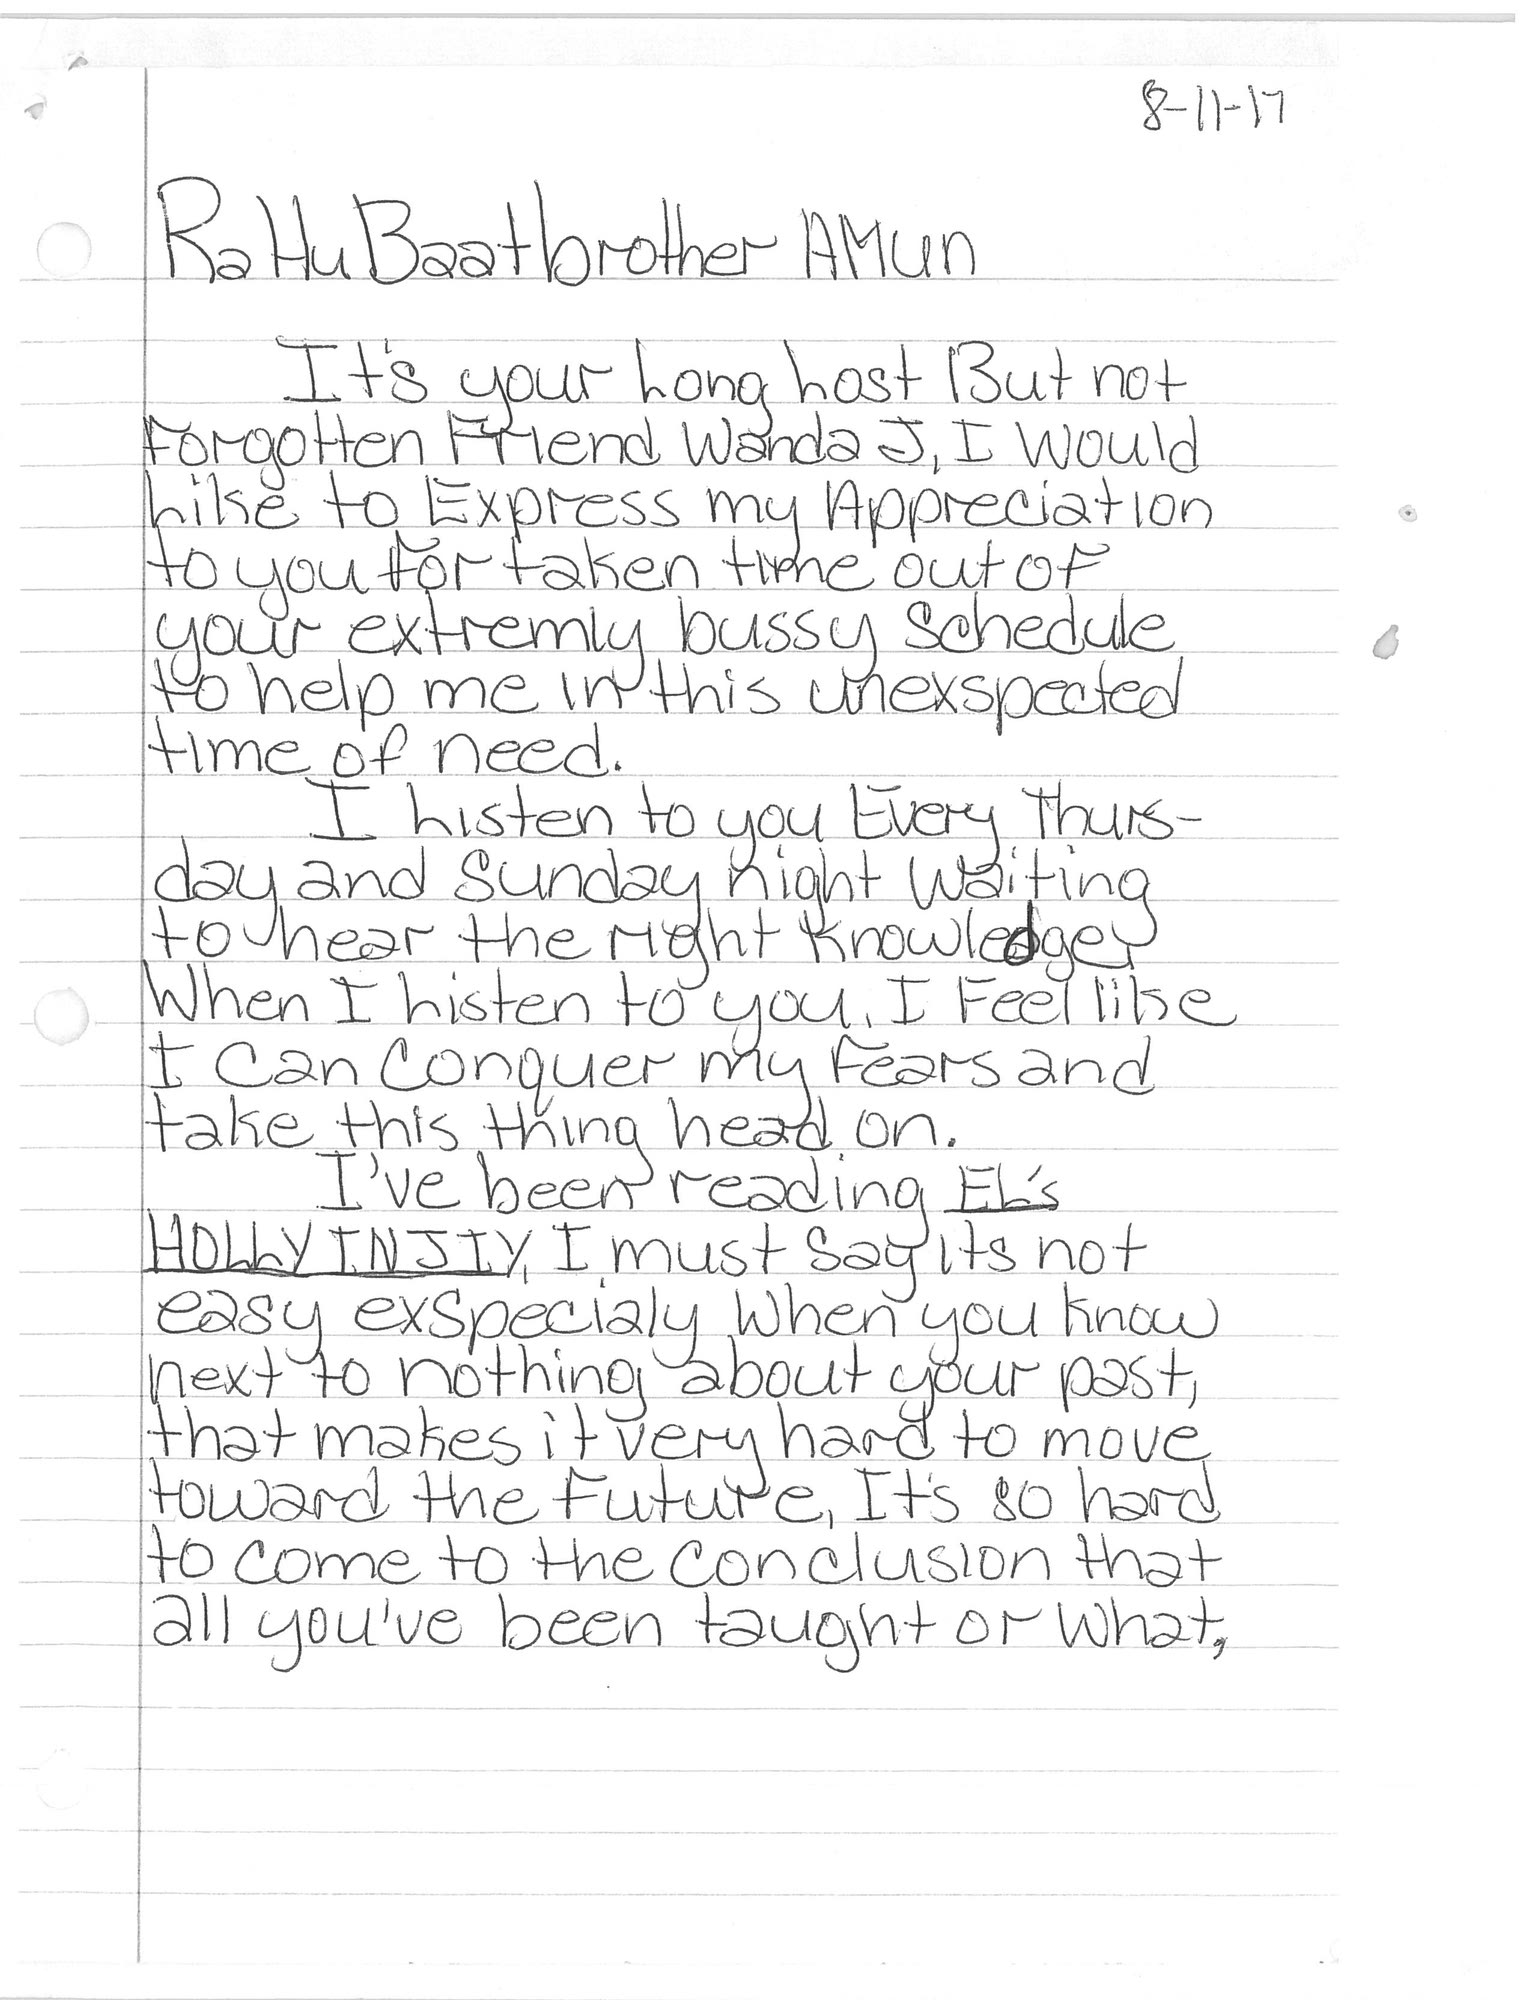 8-11-17
Ra Hu Baat brother AMun
It's your Long Lost But not
Forgotten Friend Wanda J, I Would
Like to Express my Appreciation
to you for taken time out of
your extremly bussy schedule
to help me in this unexspected
time of need.
I Listen to you Every Thurs-
day and Sunday night Waiting
to hear the right Knowledge,
When I Listen to you, I Feel like
I Can Conquer my Fears and
take this thing head on.
I've been reading EL's
HOLLY INJIY, I must say its not
easy exspecialy when you know
next to nothing about your past,
that makes it very hard to move
toward the Future, It's so hard
to come to the conclusion that
all you've been taught or what,